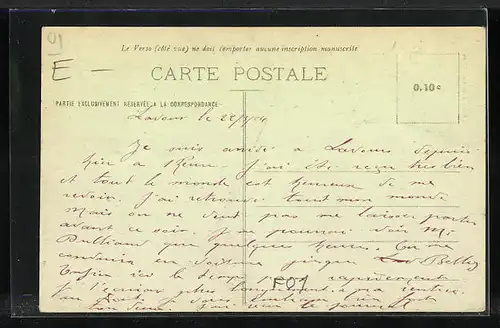 01
E –
Le Verso (côté vue) ne doit comporter aucune inscription manuscrite
CARTE POSTALE
0.10 c
PARTIE EXCLUSIVEMENT RÉSERVÉE A LA CORRESPONDANCE
Lavours le 22/9/04
Je suis arrivé à Lavours depuis
hier à 1 heure. J'ai été reçu très bien
et tout le monde est heureux de me
revoir. J'ai retrouvé tout mon monde
Mais on ne veut pas me laisser partir
avant ce soir. Je ne pourrai voir M.
que quelques heures. On me
conduira en voiture jusque Belley
Enfin ici le temps rapidement
Je t'écrirai plus longuement ma rentrée
F01
le journal